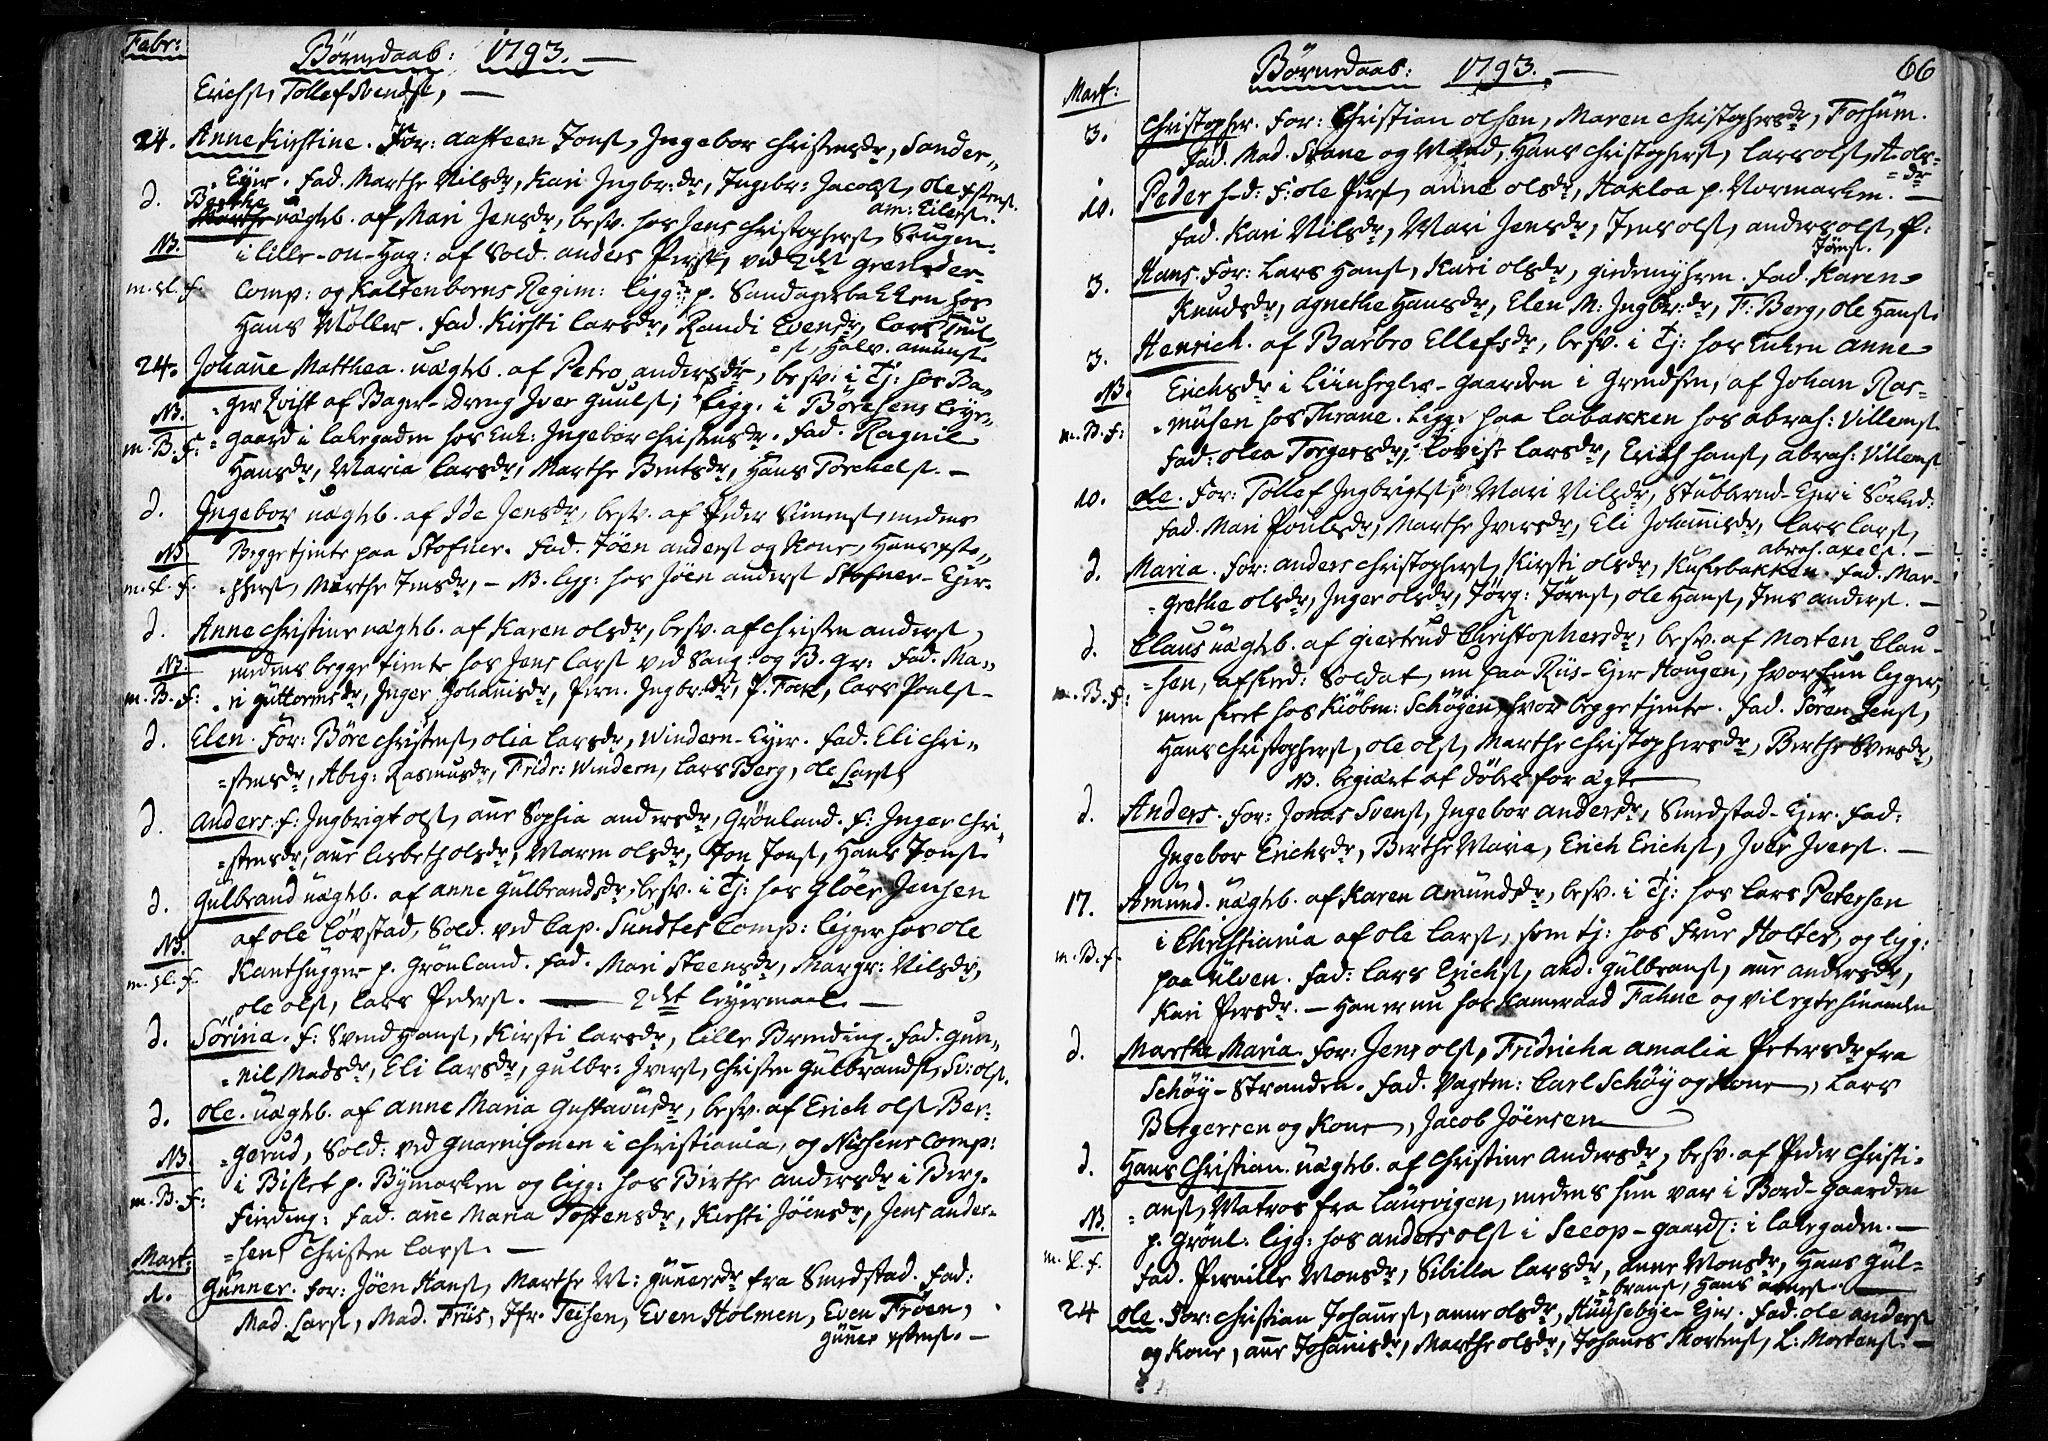 Febr:
Börnedaab: 1793. —
Erichst, Tollef Svendst, —
24. Anne Kirstine. For: Aasteen Jonst, Ingebor Christensdr, Sander-
-Eÿer. Fad. Marthe Nilsdr, Kari Ingbr:dr, Ingebr: Jacobst, Ole
Am: Eilerst.
d. Berthe uægteb. af Mari Jensdr, besv. hos Jens Christopherst,
NB. i Lille- af Sold. Anders Perst, ved 2det Grenader-
Comp: og Kaltenborns Regim: ligg: p. Sandagerbakken hos
Hans Møller. Fad. Kirsti Larsdr, Randi Evensdr, Lars
st, Halv. Amundst.
24. Johanne Matthea. uægteb. af Petro Andersdr, besv: i Tj: hos Ba-
NB. -ger Qvist af Bager-Dreng Iver Guulst; ligg: i Börresens Leÿe-
m.B.f: -gaard i Lakegaden hos Enk: Ingebor Christensdr. Fad. Ragnil
Hansdr, Maria Larsdr, Marthe Berntsdr, Hans Torchelst. —
d. Ingebor uægteb. af Ide Jensdr, besv. af Peder Simenst, medens
NB Begge tjente paa Stofner. Fad. Jöen Anderst og Kone, Hans
-pherst, Marthe Jensdr, — NB. ligg: hos Jöen Anderst Stofner-Ejer.
d. Anne Christine uægteb. af Karen Olsdr, besv. af Christen Anderst,
NB. medens begge tiente hos Jens Larst ved Sang: og B. Gr: Fad. Ma-
m.B.f: -ri Guttormsdr, Inger Johannisdr, Pern. Ingbr:dr, P. Lars Poulst —
d. Elen. For: Böre Christenst, Olia Larsdr, Windern-Eÿer. Fad. Eli Chri-
-stensdr, Abig: Rasmusdr, Fridr: Windern, Lars Berg, Ole Larst,
d. Anders. f: Ingbrigt Olst, Anne Sophia Andersdr, Grönland. f: Inger Chri-
-stensdr, Anne Lisbeth Olsdr, Maren Olsdr, Jon Jonst, Hans Jonst.
d. Gulbrand uægteb. af Anne Gulbrandsdr, besv. i Tj: hos Glöer Jensen
NB. af Ole Lövstad, Sold. ved Cap. Sundtes Comp: ligger hos Ole
Kanthugger p. Grönland. Fad. Mari Steensdr, Margr: Nilsdr,
Ole Olst, Lars Pederst. — 2det Leÿermaal. —
d. Sörina. f: Svend Hanst, Kirsti Larsdr, Lille Brending. Fad. Gun-
-nil Madsdr, Eli Larsdr, Gulbr: Iverst, Christen Gulbrandst, Sv: Olst.
d. Ole. uægteb. af Anne Maria Gustavusdr, besv. af Erich Olst Ber-
NB. -gerud, Sold: ved Guarnisonen i Christiania, og Nissens Comp:
m.B.f: i Bislet p. Bymarken og ligg: hos Birthe Andersdr i Berg-
Fierding: Fad. Anne Maria Tostensdr, Kirsti Jöensdr, Jens Ander-
-sen, Christen Larst. —
Mart:
1. Gunner. For: Jöen Hanst, Marthe M: Gunersdr fra Smedstad. Fad:
Mad. Larst, Mad. Friis, Jfr. Teisen, Even Holmen, Even Fröen,
Guner —
Börnedaab: 1793. —
66
Mart:
3. Christopher. For: Christian Olsen, Maren Christophersdr,
Fad. Mad. Stane og Hans Christopherst, Lars Olst, A. Ols-
-dr
10. Peder. f: Ole Perst, Anne Olsdr, Hakloa p. Normarken. —
Fad. Kari Nilsdr, Mari Jensdr, Jens Olst, Anders Olst, P:
Jönst.
3. Hans. For: Lars Hanst, Kari Olsdr, Fad. Karen
Knudsdr, Agnethe Hansdr, Elen M: Ingbr:dr, F: Berg, Ole Hanst.
3. Henrich. af Barbro Ellefsdr, besv. i Tj: hos Enken Anne
NB. Erichsdr i gaarden i Grendsen, af Johan Ras-
m.B.f: -musen hos Thrane. Ligg: paa Labakken hos Abrah: Villemst.
Fad: Olea Torgersdr, Lovise Larsdr, Erich Hanst, Abrah: Villemst
10. Ole. For: Tollef Ingbrigtst, Mari Nilsdr, Stubberud-Ejer i
Fad. Mari Poulsdr, Marthe Iversdr, Eli Johannisdr, Lars Larst,
Abrah. Axelst. —
d. Maria. For: Anders Christopherst, Kirsti Olsdr, Kuskebakken. Fad. Mar-
-grethe Olsdr, Inger Olsdr, Jörg: Jörnst, Ole Hanst, Jens Anderst. —
d. Claus uægteb. af Giertrud Christophersdr, besv. af Morten Clau-
m.B.f: -sen, afsked: Soldat, nu paa Riis-Ejer Hougen, hvor hun ligger,
men skeet hos Kiöbm: Schöÿen, hvor begge tjente. Fad. Sören Jenst,
Hans Christopherst, Ole Olst, Marthe Christophersdr, Berthe Svensdr,
NB. begiært at döbes for ægte —
d. Anders. For: Jonas Svenst, Ingebor Andersdr, Smedstad-Ejer. Fad:
Ingebor Erichsdr, Berthe Maria, Erich Erichst, Iver Iverst. —
17. Amund. uægteb. af Karen Amundsdr, besv. i Tj: hos Lars Petersen
m.B.f. i Christiania af Ole Larst, som tj: hos Frue Holter, og ligg:
paa Ulven. Fad: Lars Erichst, And. Gulbranst, Anne Andersdr,
Kari Persdr. — Han er nu hos Kammeraad Fahne og vil egte hinanden
d. Marthe Maria. For: Jens Olst, Fridricha Amalia Petersdr fra
Schöÿ-Stranden. Fad. Vagtm: Carl Schöÿ og Kone, Lars
Bergersen og Kone, Jacob Jöensen
d. Hans Christian. uægteb. af Christine Andersdr, besv. af Peder Christi-
NB. -anst, Matros fra Laurvigen, medens hun var i Bord-Gaarden
m.L.f. p. Grönl: ligg: hos Anders Olst i Seeop-gaard: i Lakegaden. —
Fad. Pernille Monsdr, Sibilla Larsdr, Anne Monsdr, Hans Gul-
-branst, Hans —
24 Ole. For: Christian Johannest, Anne Olsdr, Huusebÿe-Ejer. Fad. Ole Anderst
og Kone, Anne Johannisdr, Marthe Olsdr, Johanes Mortenst, L: Mortenst. —